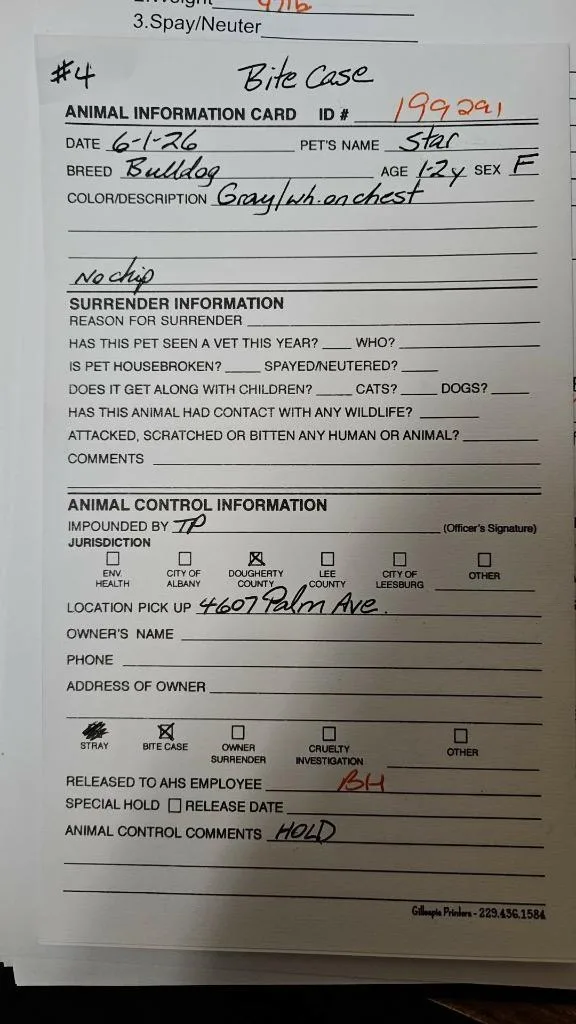 3.Spay/Neuter
#4 Bite Case
ANIMAL INFORMATION CARD ID # 199291
DATE 6-1-26 PET'S NAME Star
BREED Bulldog AGE 1-2y SEX F
COLOR/DESCRIPTION Gray/wh. on chest
No chip
SURRENDER INFORMATION
REASON FOR SURRENDER
HAS THIS PET SEEN A VET THIS YEAR? WHO?
IS PET HOUSEBROKEN? SPAYED/NEUTERED?
DOES IT GET ALONG WITH CHILDREN? CATS? DOGS?
HAS THIS ANIMAL HAD CONTACT WITH ANY WILDLIFE?
ATTACKED, SCRATCHED OR BITTEN ANY HUMAN OR ANIMAL?
COMMENTS
ANIMAL CONTROL INFORMATION
IMPOUNDED BY TP (Officer's Signature)
JURISDICTION
ENV. HEALTH CITY OF ALBANY DOUGHERTY COUNTY LEE COUNTY CITY OF LEESBURG OTHER
LOCATION PICK UP 4607 Palm Ave.
OWNER'S NAME
PHONE
ADDRESS OF OWNER
STRAY BITE CASE OWNER SURRENDER CRUELTY INVESTIGATION OTHER
RELEASED TO AHS EMPLOYEE BH
SPECIAL HOLD RELEASE DATE
ANIMAL CONTROL COMMENTS HOLD
Gillespie Printers - 229.436.1584